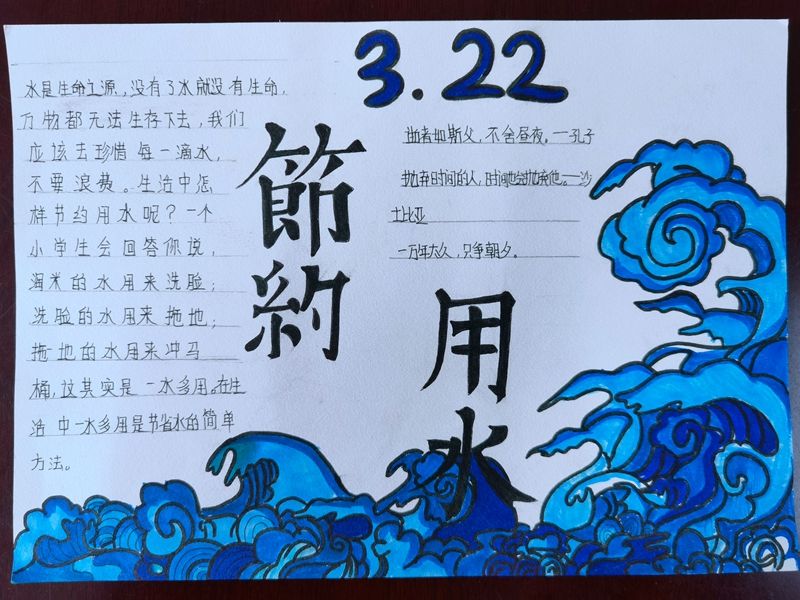 3.22
節約
用水
水是生命之源,没有了水就没有生命,
万物都无法生存下去,我们
应该去珍惜每一滴水,
不要浪费。生活中怎
样节约用水呢?一个
小学生会回答你说,
淘米的水用来洗脸;
洗脸的水用来拖地;
拖地的水用来冲马
桶,这其实是一水多用。在生
活中一水多用是节省水的简单
方法。
逝者如斯夫,不舍昼夜。——孔子
抛弃时间的人,时间也会抛弃他。——沙
士比亚
一万年太久,只争朝夕。